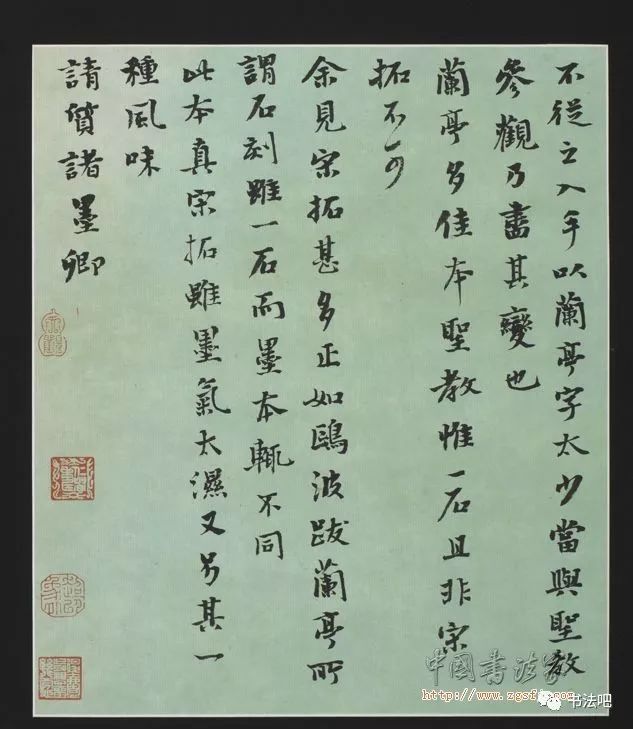 不從之入手以蘭亭字太少當與聖教
參觀乃盡其變也
蘭亭多佳本聖教惟一石且非宋
拓不可
余見宋拓甚多正如鷗波跋蘭亭所
謂石刻雖一石而墨本輒不同
此本真宋拓雖墨氣太濕又另其一
種風味
請質諸墨卿
中國書法家
http://www.zgsf
书法吧